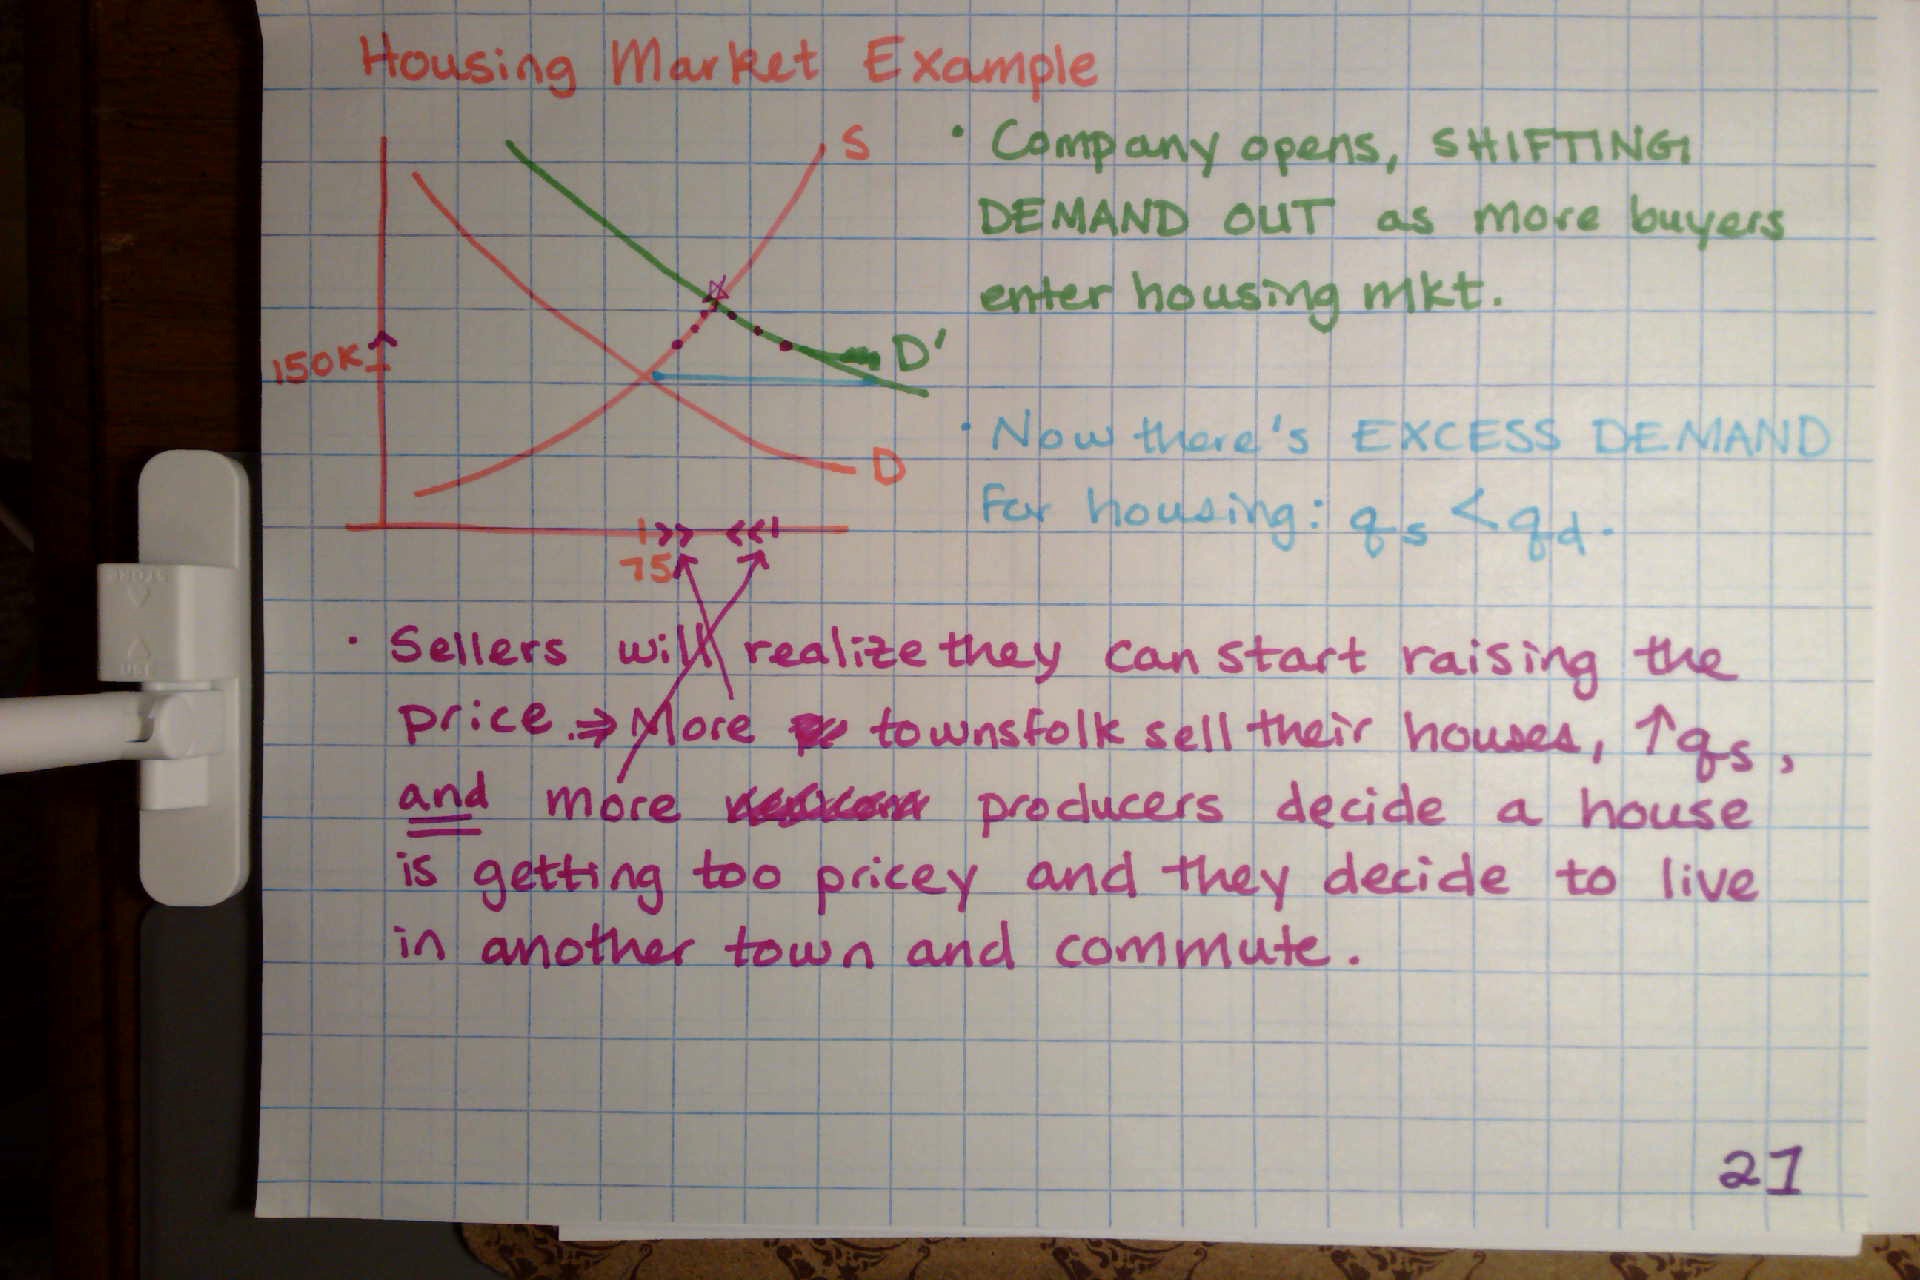 Housing Market Example
S
• Company opens, SHIFTING
DEMAND OUT as more buyers
enter housing mkt.
150K
D'
D
75
• Now there's EXCESS DEMAND
for housing: qs < qd.
• Sellers will realize they can start raising the
price. ⇒ More townsfolk sell their houses, ↑qs,
and more producers decide a house
is getting too pricey and they decide to live
in another town and commute.
21